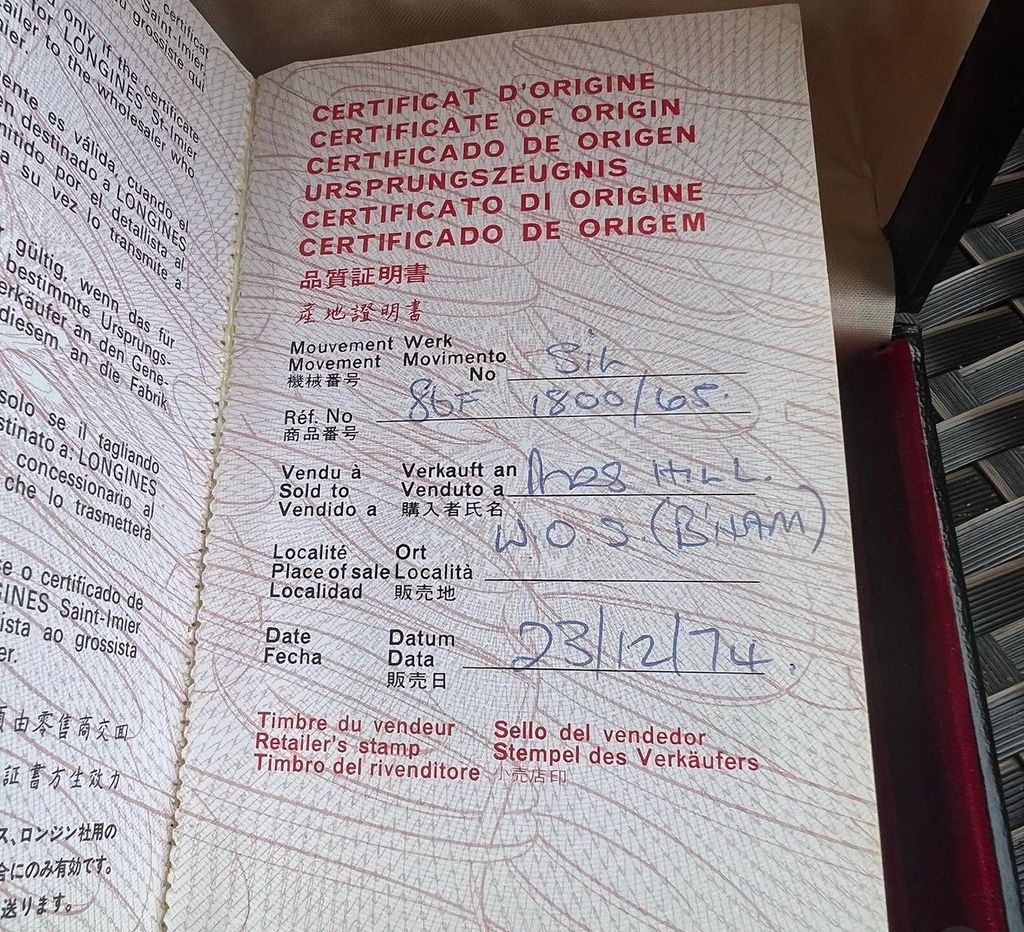 certificat
Saint-Imier
grossiste qui
only if the certificate
for LONGINES St-Imier
ailer to the wholesaler who
mier.
ente es válida, cuando el
en destinado a LONGINES
mitido por el detallista al
a su vez lo transmite a
gültig, wenn das für
bestimmte Ursprungs-
erkäufer an den Gene-
diesem an die Fabrik
solo se il tagliando
stinato a: LONGINES
concessionario al
che lo trasmetterà
se o certificado de
GINES Saint-Imier
ista ao grossista
er.
由零售商交回
証書方生效力
ス、ロンジン社用の
合にのみ有効です。
送ります。
CERTIFICAT D'ORIGINE
CERTIFICATE OF ORIGIN
CERTIFICADO DE ORIGEN
URSPRUNGSZEUGNIS
CERTIFICATO DI ORIGINE
CERTIFICADO DE ORIGEM
品質証明書
産地證明書
Mouvement Werk
Movement Movimento
機械番号 No
Réf. No 86F 1800/65.
商品番号
Vendu à Verkauft an
Sold to Venduto a HILL.
Vendido a 購入者氏名
W.O.S. (B'HAM)
Localité Ort
Place of sale Località
Localidad 販売地
Date Datum 23/12/74.
Fecha Data
販売日
Timbre du vendeur Sello del vendedor
Retailer's stamp Stempel des Verkäufers
Timbro del rivenditore 小売店印